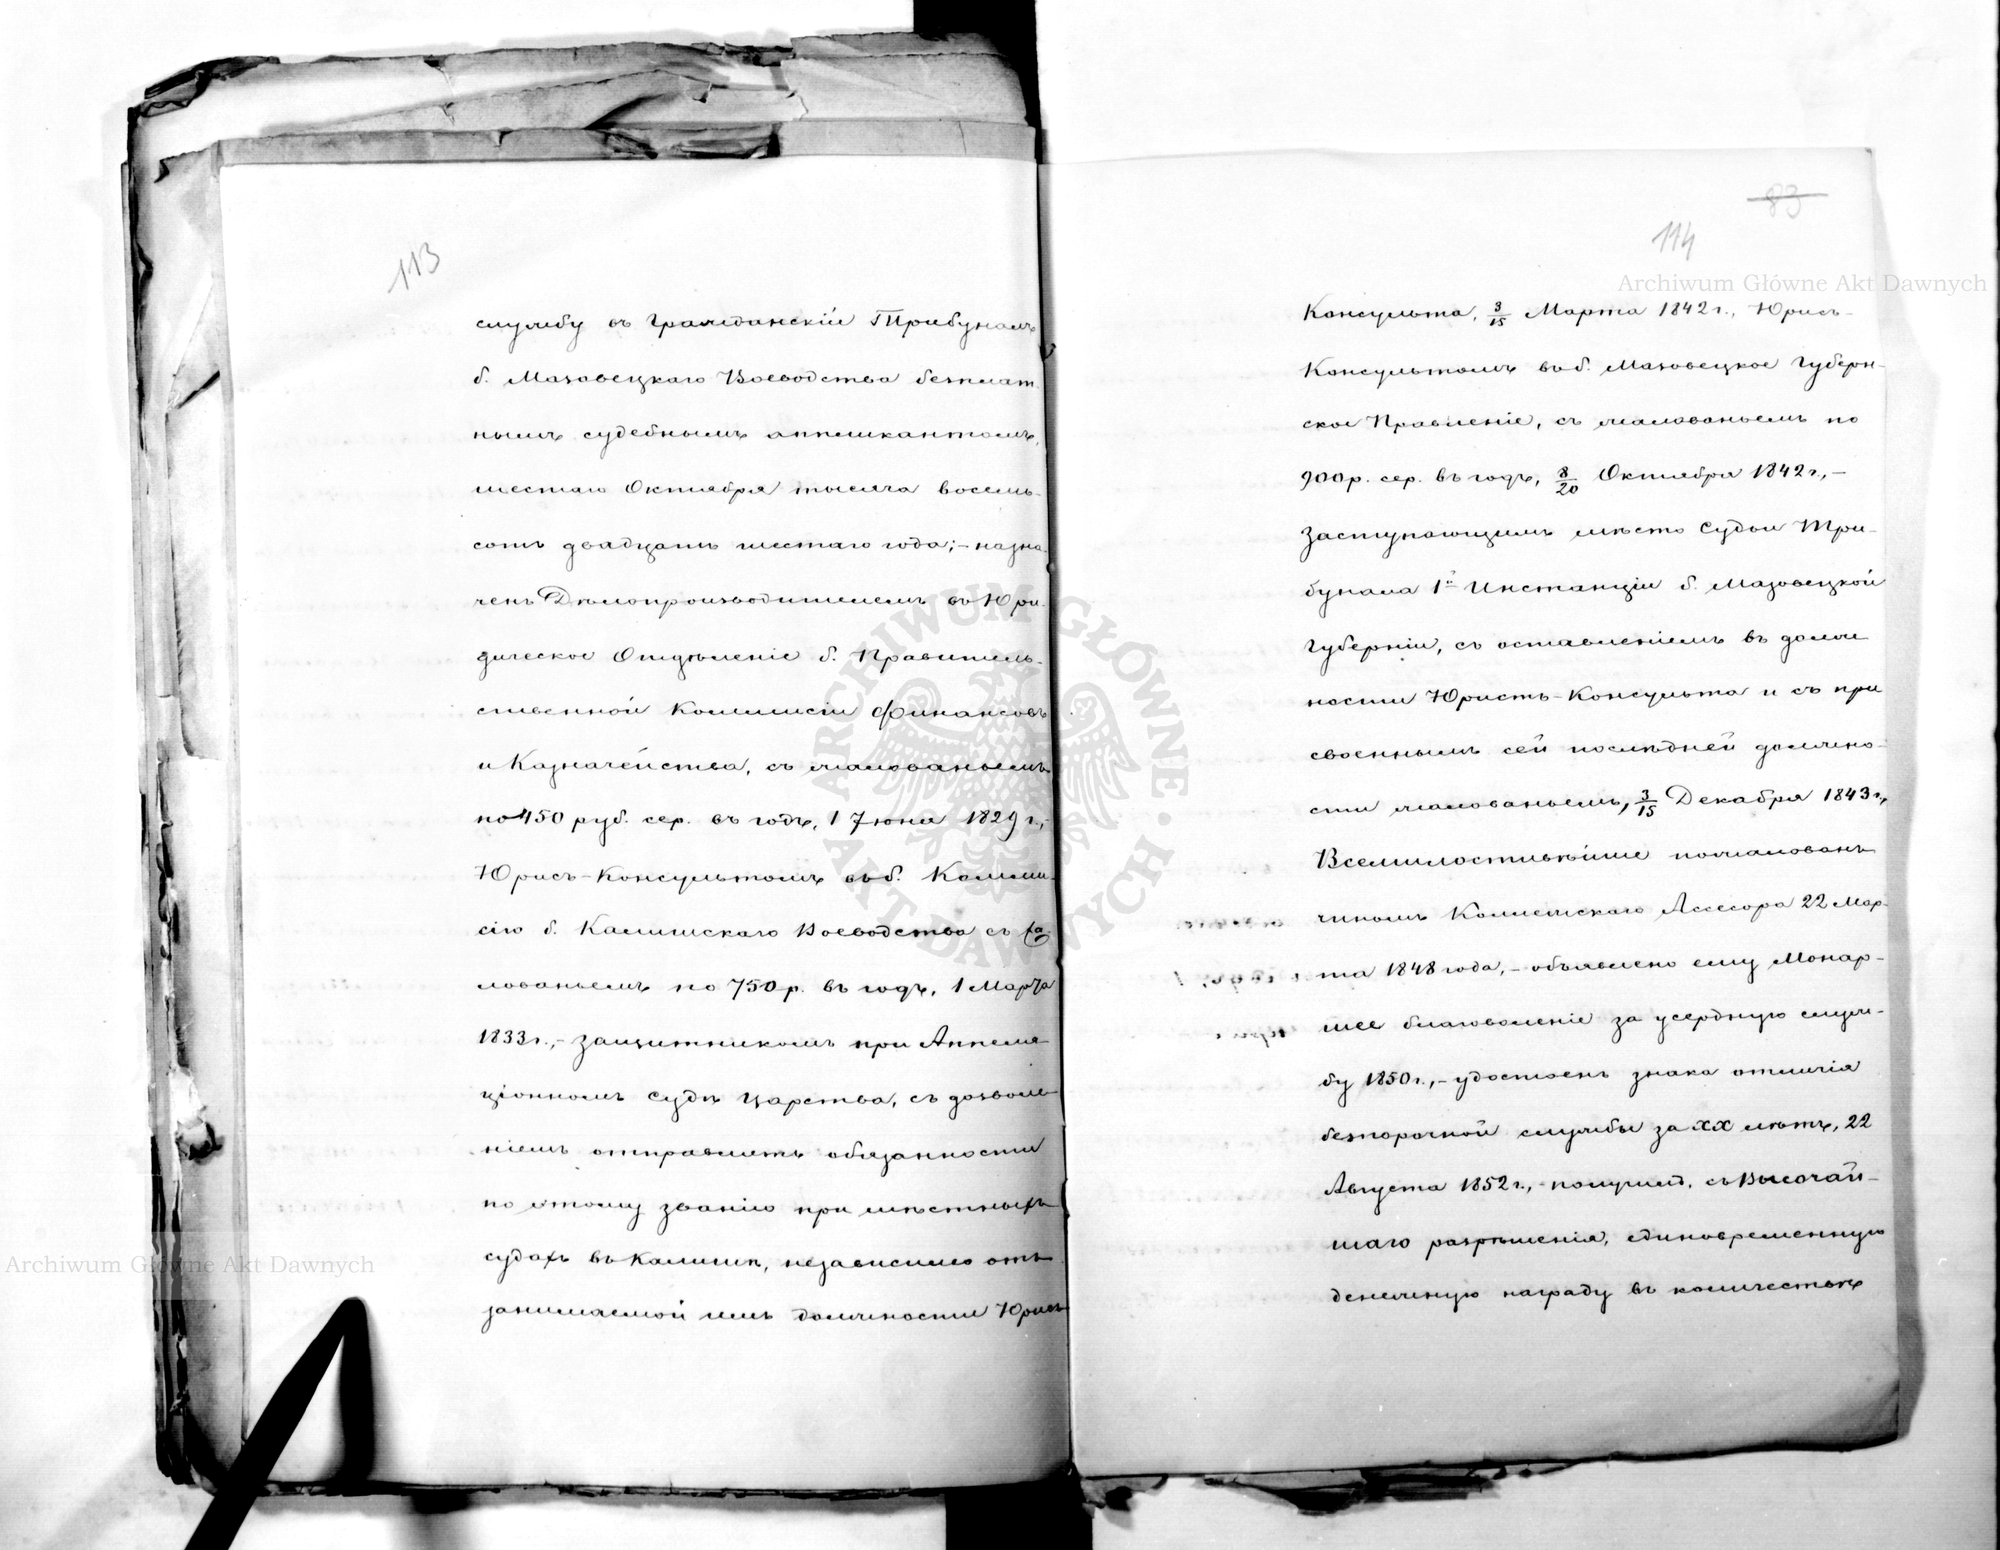 113
службу въ Гражданскій Трибуналъ
б. Мазовецкаго Воеводства безплат-
нымъ судебнымъ аппликантомъ,
шестаго Октября тысяча восемь-
сотъ двадцать шестаго года; - назна-
ченъ Дѣлопроизводителемъ въ Юри-
дическое Отдѣленіе б. Правитель-
ственной Коммисіи Финансовъ
и Казначейства, съ жалованьемъ
по 450 руб. сер. въ годъ, 1 Іюня 1829 г.,-
Юрисъ-Консультомъ въ б. Комми-
сію б. Калишскаго Воеводства съ жа-
лованьемъ по 750 р. въ годъ, 1 Марта
1833 г.,- защитникомъ при Аппеля-
ціонномъ Судѣ Царства, съ дозволе-
ніемъ отправлять обязанности
по этому званію при мѣстныхъ
судахъ въ Калишѣ, независимо отъ
занимаемой имъ должности Юрисъ
83
114
Консульта, 3/15 Марта 1842 г., Юрисъ-
Консультомъ въ б. Мазовецкое Губерн-
ское Правленіе, съ жалованьемъ по
900 р. сер. въ годъ, 8/20 Октября 1842 г.,-
заступающимъ мѣсто Судьи Три-
бунала 1й Инстанціи б. Мазовецкой
Губерніи, съ оставленіемъ въ долж
ности Юристъ-Консульта и съ при
своеннымъ сей послѣдней должно-
сти жалованьемъ, 3/15 Декабря 1843 г.,
Всемилостивѣйше пожалованъ
чиномъ Коллежскаго Ассесора 22 Мар-
та 1848 года,- объявлено ему Монар-
шее благоволеніе за усердную служ-
бу 1850 г.,- удостоенъ знака отличія
безпорочной службы за XX лѣтъ, 22
Августа 1852 г.,- получилъ, съ Высочай-
шаго разрѣшенія, единовременную
денежную награду въ количествѣ
Archiwum Główne Akt Dawnych
Archiwum Główne Akt Dawnych
ARCHIWUM GŁÓWNE · AKT DAWNYCH ·